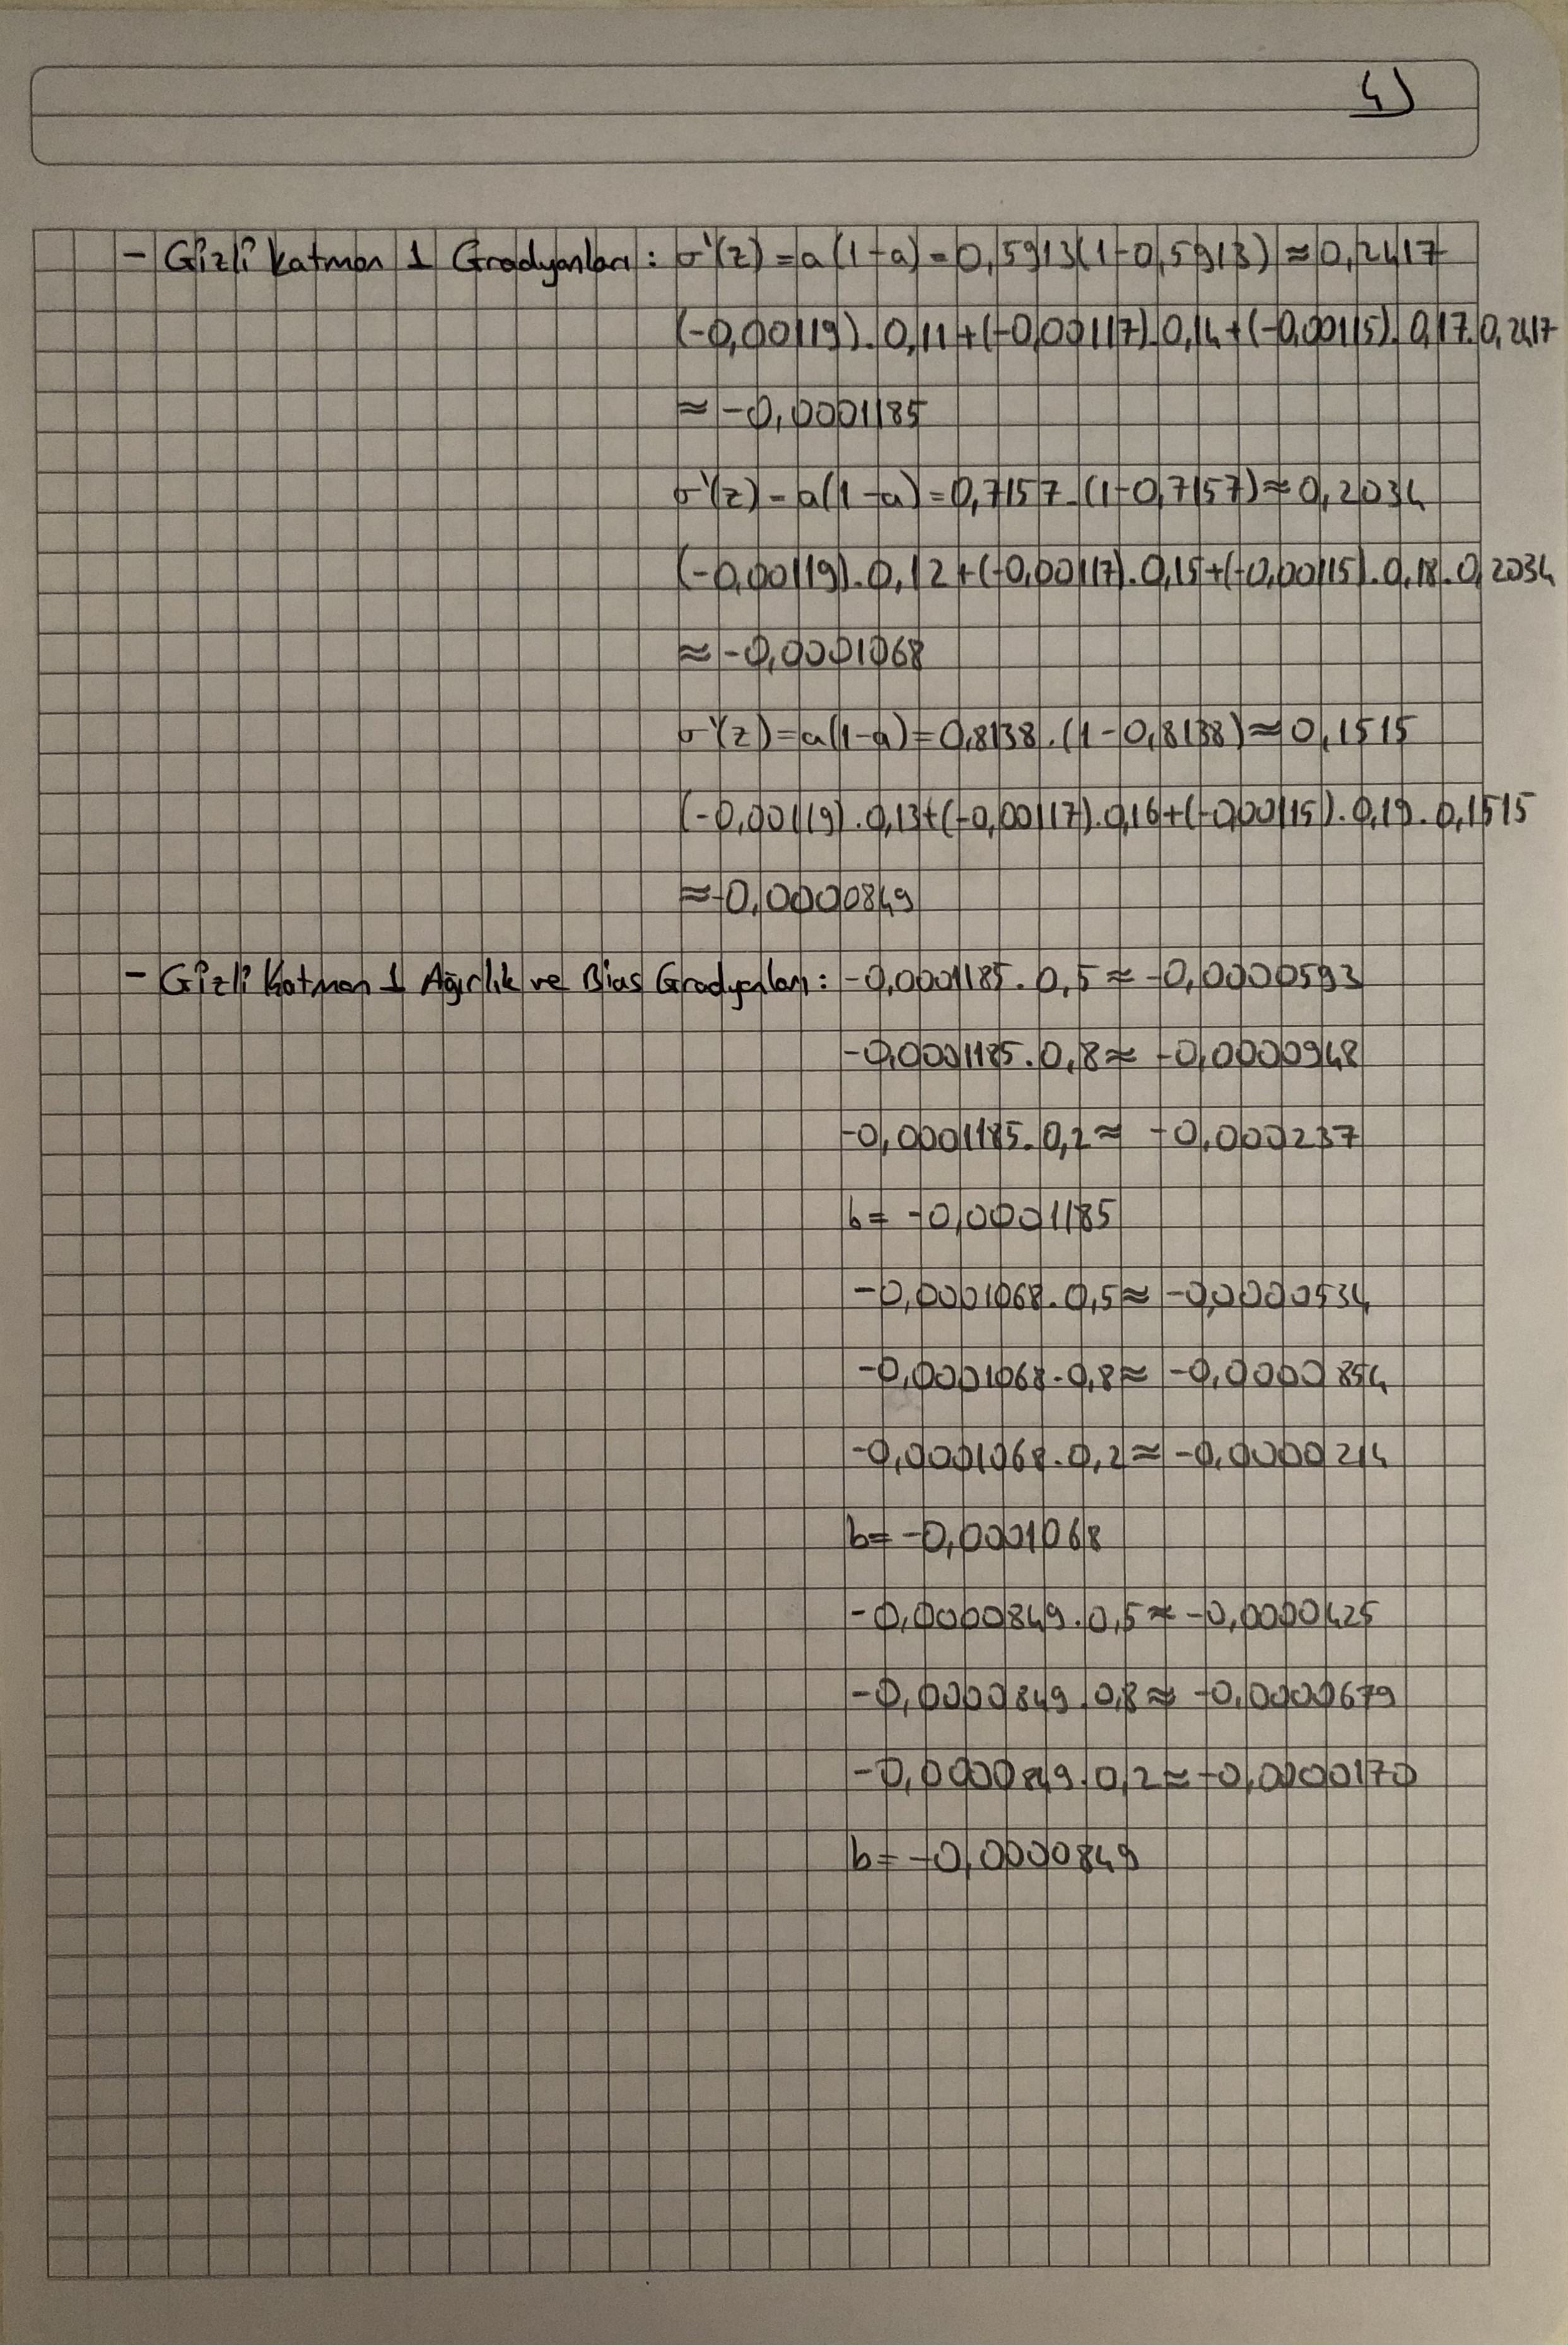 4)
- Gizli katman 1 Gradyanları: σ'(z)=a(1-a)=0,5913(1-0,5913)≈0,2417
(-0,00119).0,11+(-0,00117).0,14+(-0,00115).0,17.0,2417
≈ -0,0001185
σ'(z)=a(1-a)=0,7157.(1-0,7157)≈0,2034
(-0,00119).0,12+(-0,00117).0,15+(-0,00115).0,18.0,2034
≈ -0,0001068
σ'(z)=a(1-a)=0,8138.(1-0,8138)≈0,1515
(-0,00119).0,13+(-0,00117).0,16+(-0,00115).0,19.0,1515
≈-0,0000849
- Gizli Katman 1 Ağırlık ve Bias Gradyenları: -0,0001185.0,5≈-0,0000593
-0,0001185.0,8≈ -0,0000948
-0,0001185.0,2≈ -0,000237
b= -0,0001185
-0,0001068.0,5≈ -0,0000534
-0,0001068.0,8≈ -0,0000854
-0,0001068.0,2≈ -0,0000214
b= -0,0001068
-0,0000849.0,5≈ -0,0000425
-0,0000849.0,8≈ -0,0000679
-0,0000849.0,2≈-0,0000170
b= -0,0000849